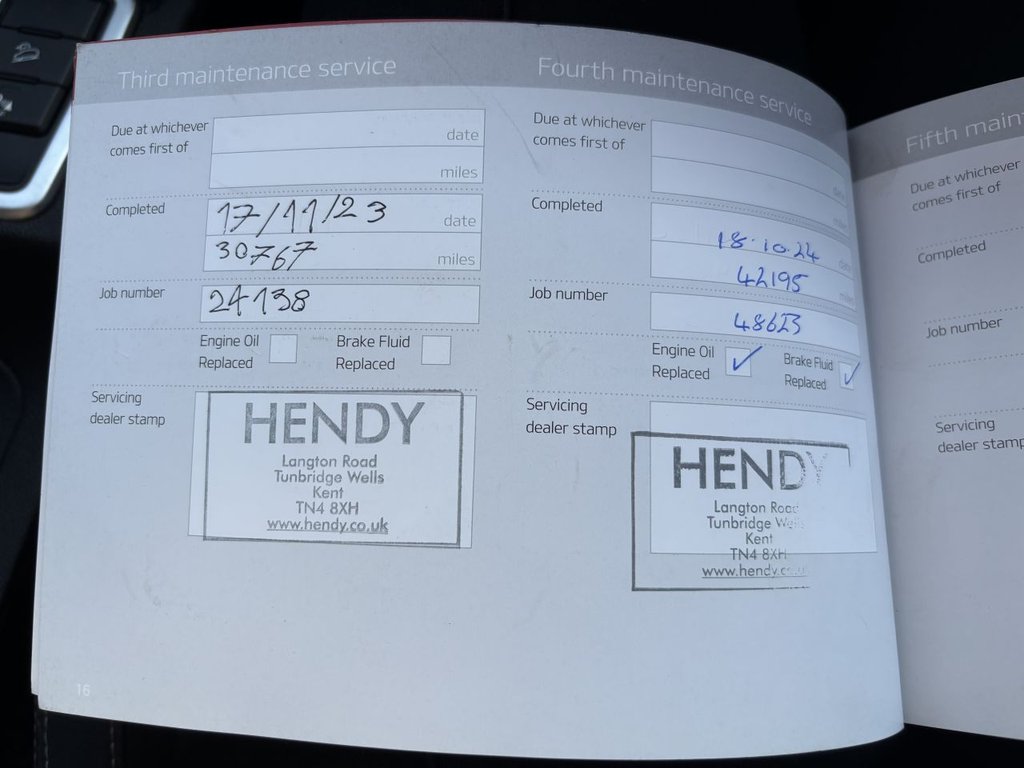 Third maintenance service
Due at whichever
comes first of
date
miles
Completed
17/11/23
date
30767
miles
Job number
24138
Engine Oil
Replaced
Brake Fluid
Replaced
Servicing
dealer stamp
HENDY
Langton Road
Tunbridge Wells
Kent
TN4 8XH
www.hendy.co.uk
16
Fourth maintenance service
Due at whichever
comes first of
date
miles
Completed
18.10.24
date
42195
miles
Job number
Engine Oil
Replaced
Brake Fluid
Replaced
Servicing
dealer stamp
HENDY
Langton Road
Tunbridge Wells
Kent
TN4 8XH
www.hendy.co.u
Fifth main
Due at whichever
comes first of
Completed
Job number
Servicing
dealer stamp